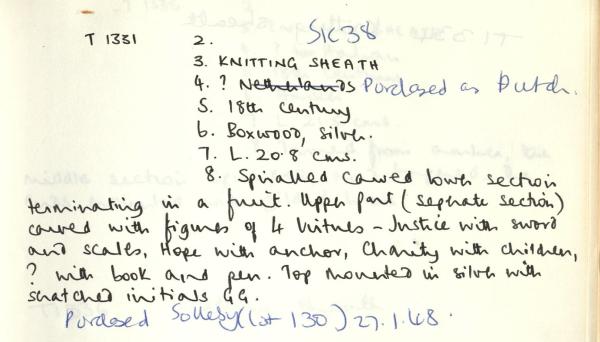 T 1331 2. SIC 38
3. KNITTING SHEATH
4. ? Netherlands Purchased as Dutch.
5. 18th century
6. Boxwood, silver.
7. L. 20.8 cms.
8. Spiralled carved lower section
terminating in a fruit. Upper part (seprate section)
carved with figures of 4 Virtues - Justice with sword
and scales, Hope with anchor, Charity with children,
? with book and pen. Top mounted in silver with
scratched initials GG.
Purchased Sotheby (lot 130) 27.1.48.